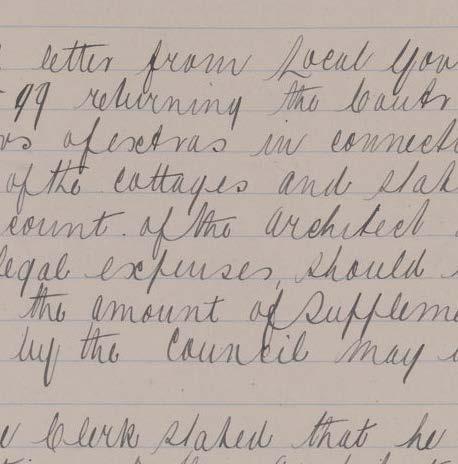 letter from Local Gov
99 returning the Contr
of extras in connecti
of the cottages and stat
count of the architect
legal expenses, should
the amount of Suppleme
by the Council may
Clerk stated that he